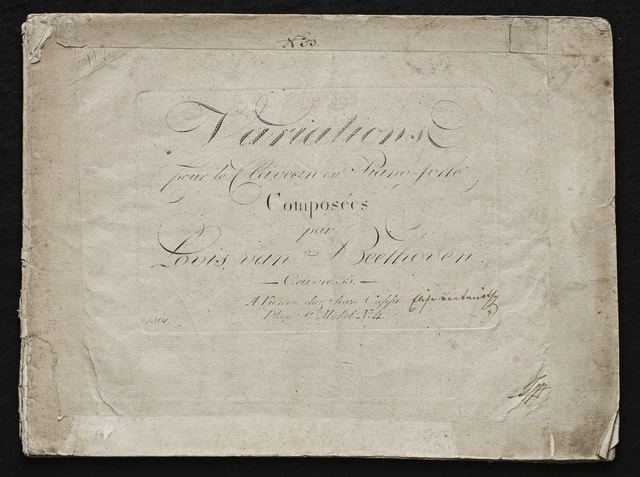 N 53.
Variations
pour le Clavecin ou Piano-forte
Composées
par
Louis van Beethoven
Oeuvre 35.
A Vienne chez Jean Cappi
Place St. Michel No. 4.